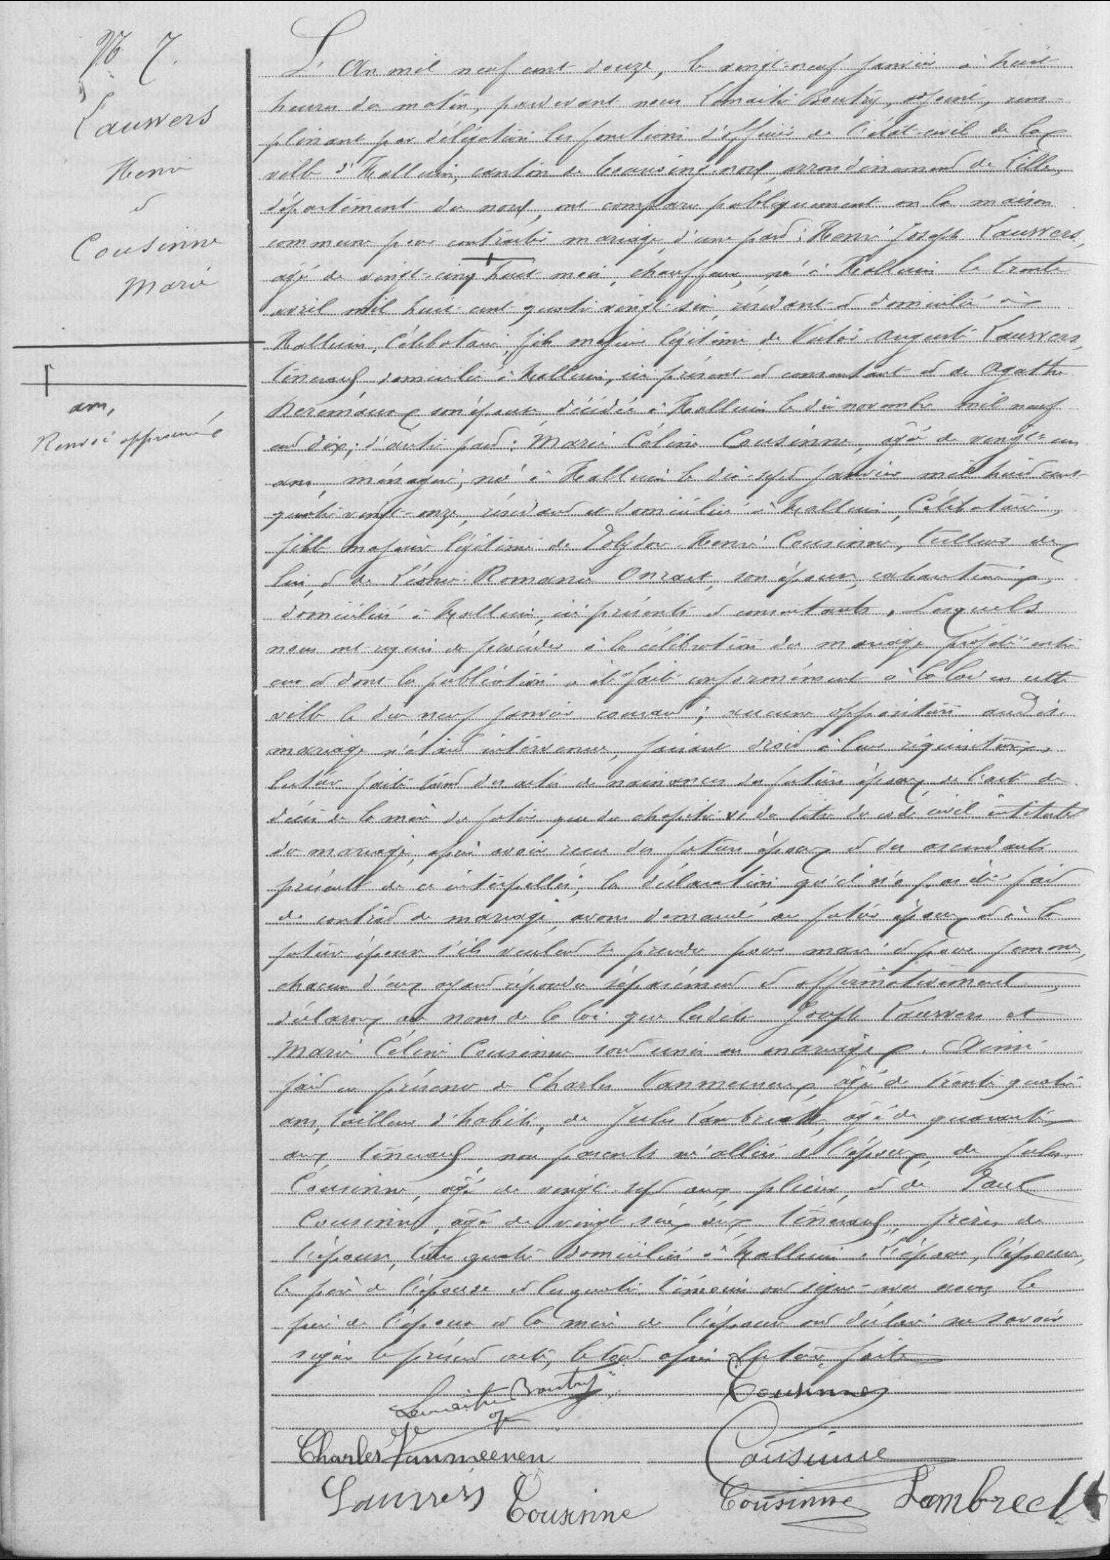 N° 7.
Lauwers
Henri
et
Cousinne
Marie
ans,
Renvoi approuvé
L'An mil neuf cent douze, le vingt-neuf Janvier à huit
heures du matin, pardevant nous Lemaitre Boutry, adjoint, rem-
plissant par délégation les fonctions d'officier de l'état-civil de la
ville d'Halluin, canton de Tourcoing-nord, arrondissement de Lille,
département du nord, ont comparu publiquement en la maison
commune pour contracter mariage, d'une part: Henri Joseph Lauwers,
âgé de vingt-cinq huit mois, chauffeur, né à Halluin le trente
avril mil huit cent quatre vingt-six, résidant et domicilié à
Halluin, Célibataire, fils majeur légitime de Victor Auguste Lauwers,
tisserand, domicilié à Halluin, ici présent et consentant et de Agathe
son épouse décédée à Halluin le dix novembre mil neuf
cent dix; d'autre part: Marie Céline Cousinne, âgée de vingt-un
ans, ménagère, née à Halluin le dix-sept Janvier mil huit cent
quatre vingt-onze, résidant et domiciliée à Halluin, Célibataire,
fille majeure légitime de Polydor Henri Cousinne, tilleur de
lin, et de Léonie Romanie Onraet, son épouse, cabaretière,
domiciliés à Halluin, ici présents et consentants. Lesquels
nous ont requis de procéder à la célébration du mariage projeté entre
eux et dont la publication a été faite conformément à la loi en cette
ville le dix neuf Janvier courant; aucune opposition audit
mariage n'étant intervenue, faisant droit à leur réquisition,
lecture faite tant des actes de naissances des futurs époux, de l'acte de
décès de la mère du futur que du chapitre VI du titre du code civil intitulé
du mariage, après avoir reçu des futurs époux et des ascendants
présents de ce interpellés, la déclaration qu'il n'a pas été fait
de contrat de mariage, avons demandé au futur époux et à la
future épouse s'ils veulent se prendre pour mari et pour femme,
chacun d'eux ayant répondu séparément et affirmativement,
déclarons au nom de la loi que lesdits Joseph Lauwers et
Marie Céline Cousinne sont unis en mariage. Ainsi
fait en présence de Charles Vanmeenen, âgé de trente quatre
ans, tailleur d'habits, de Jules Lambrecht, âgé de quarante
ans, tisserand, non parents ni alliés de l'époux, de Jules
Cousinne, âgé de vingt-sept ans, plieur, et de Paul
Cousinne, âgé de vingt six ans, tisserand, frères de
l'épouse, tous quatre domiciliés à Halluin. L'époux, l'épouse,
le père de l'épouse et les quatre témoins ont signé avec nous, le
père de l'époux et la mère de l'épouse ont déclaré ne savoir
signer le présent acte, le tout après lecture faite
Lemaitre Boutry
Cousinne
Charles Vanmeenen
Cousinne
Lauwers
Cousinne
Cousinne
Lambrecht